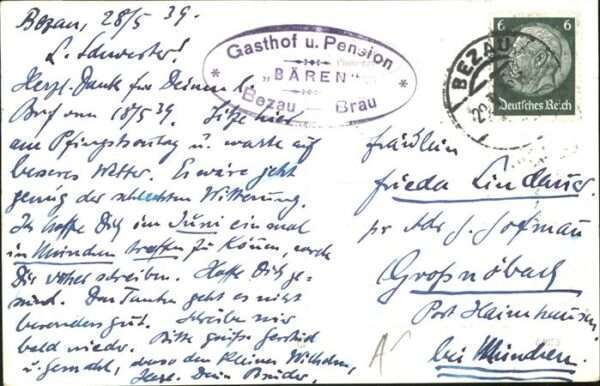 Bezau, 28/5 39.
L. Schwester!
Herzl. Dank für Deinen l.
Brief vom 18/5 39. Sitze hier
am Pfingstsonntag u. warte auf
besseres Wetter. Es wäre jetzt
genug der schlechten Witterung.
Ich hoffe Dich im Juni einmal
in München treffen zu können, werde
Dir vorher schreiben. Hoffe Dich ge-
sund. Der Tante geht es nicht
besonders gut. Schreibe mir
bald wieder. Bitte grüße
u. Gemahl, den kleinen Wilhelm,
Herzl. Dein Bruder,
Gasthof u. Pension
* „BÄREN" *
Bezau — Brau
BEZAU
6 6
Deutsches Reich
Fräulein
Frieda Lindauer
pr Adr J. Hofmau
Großnöbach
Post Haimhausen
bei München.